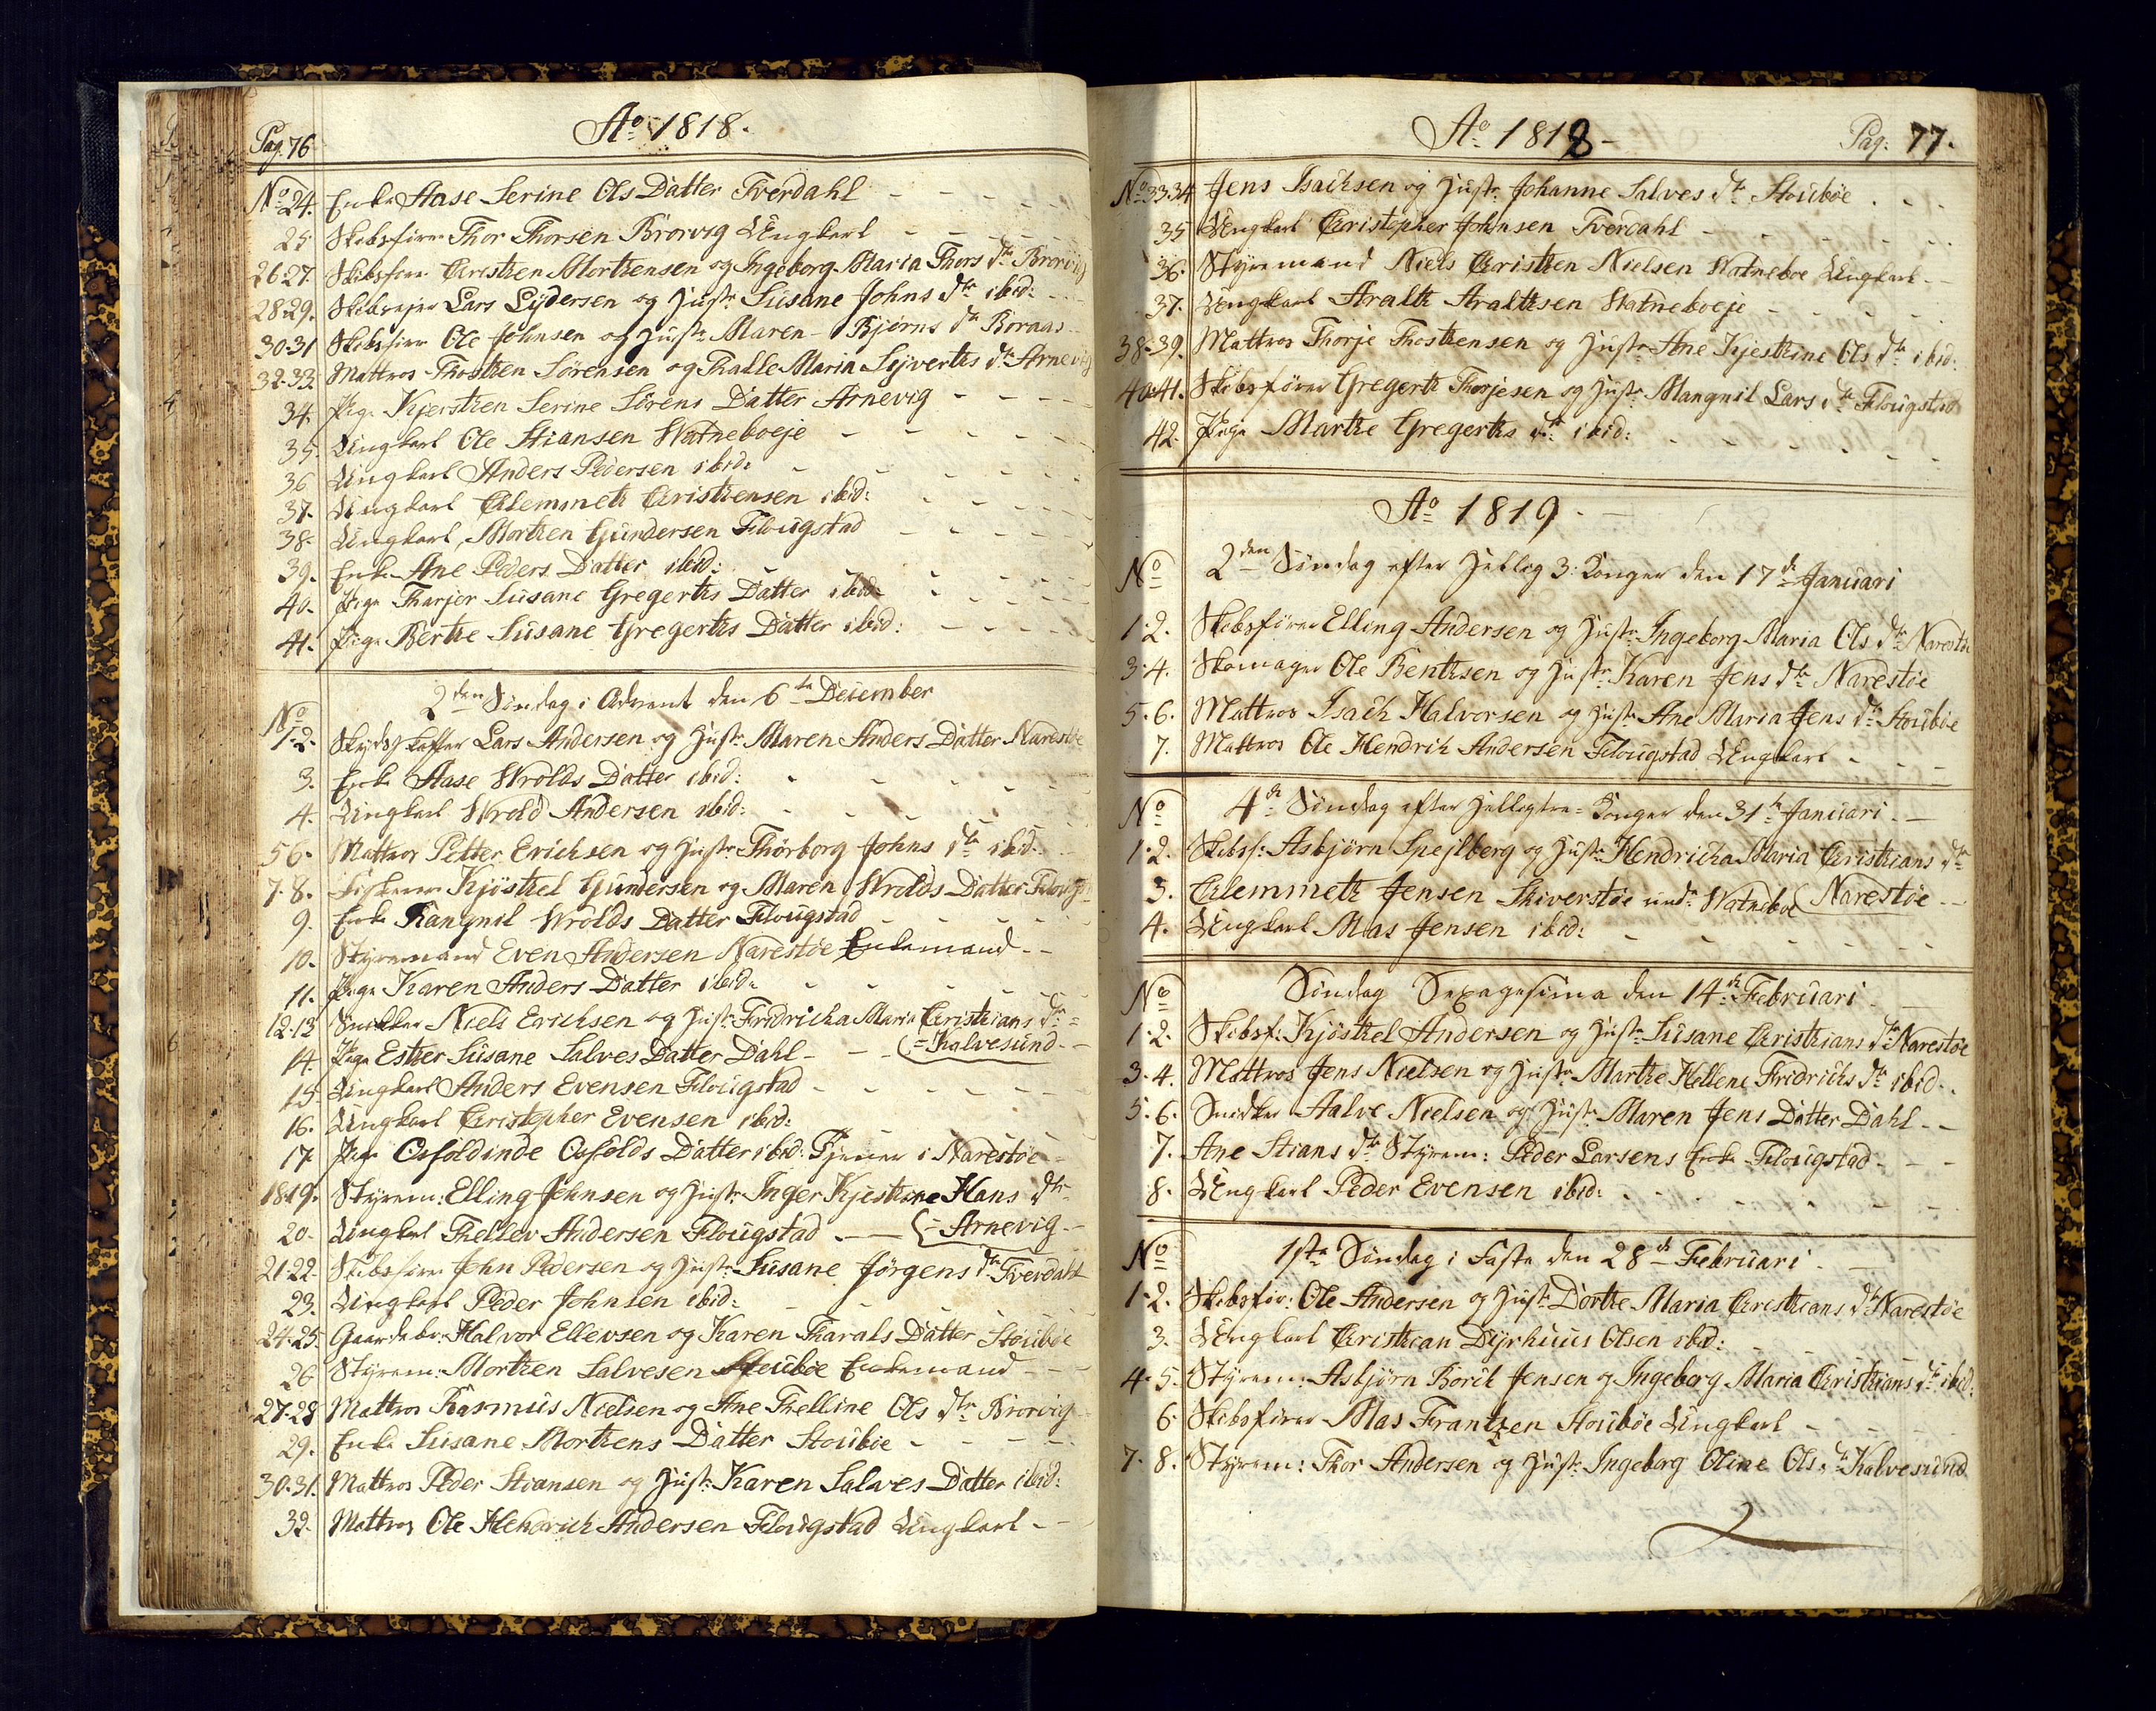 Pag. 76
Ao 1818.
No 24. Enke Aase Serine Ols Datter Tverdahl
25 Skibsfører Thor Thorsen Brorvig Ungkarl
26.27. Skibsfører Christen Mortensen og Ingeborg Maria Thors dtr Brorvig
28.29. Skibsejer Lars Lydersen og Hustr: Susane Johns dtr ibid:
30.31 Skibsfører Ole Johnsen og Hustr: Maren Bjørns dtr Boraas
32.33. Mattros Thosten Sørensen og Thalle Maria Syverts dtr Arnevig
34. Pige Kjersten Serine Sørens Datter Arnevig
35. Ungkarl Ole Stiansen Watneboeje
36 Ungkarl Anders Pedersen ibid:
37. Ungkarl Clemmeth Christensen ibid:
38. Ungkarl, Morten Gundersen Flougstad
39. Enke Ane Peders Datter ibid:
40. Pige Tharjer Susane Gregerts Datter ibid:
41. Pige Berthe Susane Gregerts Datter ibid:
2den Søndag i Advent den 6te December
No
1.2. Skydsskaffer Lars Andersen og Hustr: Maren Anders Datter Narestøe
3. Enke Aase Wrolds Datter ibid:
4. Ungkarl Wrold Andersen ibid:
5 6. Mattros Petter Erichsen og Hustr: Thørborg Johns dtr ibid:
7.8. Fiskeren Kjøstel Gundersen og Maren Wrolds Datter Flougs
9. Enke Rangnil Wrolds Datter Flougstad
10. Styremand Even Andersen Narestøe Enkemand
11. Pige Karen Anders Datter ibid:
12.13 Snikker Niels Erichsen og Hustr: Fridricha Maria Christians dtr =
14. Pige Ester Susane Salves Datter Dahl (= Kalvesund
15 Ungkarl Anders Evensen Flougstad
16. Ungkarl Christopher Evensen ibid:
17 Pige Osfoldinde Osfolds Datter ibid: Tjener i Narestøe
18.19. Styrem: Elling Johnsen og Hustr: Inger Kjestine Hans dtr
20. Ungkarl Thellev Andersen Flougstad (= Arnevig
21.22. Skibsfører John Pedersen og Hustr: Susane Jørgens dtr Tverdahl
23. Ungkarl Peder Johnsen ibid:
24.25. Gaardebr: Halvor Ellevsen og Karen Tharals Datter Stoubøe
26 Styrem: Morthen Salvesen Stoubøe Enkemand
27.28 Mattros Rasmus Nielsen og Ane Thelline Ols dtr Brorvig
29. Enke Susane Morthens Datter Stoubøe
30.31. Mattros Peder Stiansen og Hustr: Karen Salves Datter ibid:
32. Mattros Ole Hendrich Andersen Flougstad Ungkarl
Ao 1818
Pag: 77.
No 33.34 Jens Isachsen og Hustr: Johanne Salves dtr Stoubøe
35 Ungkarl Christopher Johnsen Tverdahl
36. Styremand Niels Christen Nielsen Watneboe Ungkarl
37. Ungkarl Aralth Aralthsen Watneboeje
38.39. Mattros Thorje Thostensen og Hustr: Ane Kjestine Ols dtr ibid:
40.41. Skibsfører Gregerth Thorjesen og Hustr: Mangnil Lars dtr Flougstad
42. Pige Marthe Gregerths dtr: ibid:
Ao 1819
No 2den Søndag efter Hellig 3 Konger den 17de Januari
1.2. Skibsfører Elling Andersen og Hustr: Ingeborg Maria Ols dtr Narestøe
3.4. Skomager Ole Benthsen og Hustr: Karen Jens dtr Narestøe
5.6. Mattros Isach Halvorsen og Hustr: Ane Maria Jens dtr Stoubøe
7. Mattros Ole Hendrich Andersen Flougstad Ungkarl
No 4de Søndag efter Helligtre= Konger den 31te Januari
1.2. Skibsf: Asbjørn Spejlberg og Hustr: Hendricha Maria Christians dtr
3. Clemmeth Jensen Skiverstøe und: Watneboe (Narestøe
4. Ungkarl Mas Jensen ibid:
No Søndag Sexagesima den 14de Februari
1.2. Skibsf: Kjøstel Andersen og Hustr: Susane Christians dtr Narestøe
3.4. Mattros Jens Nielsen og Hustr: Marthe Hellene Fridrichs dtr ibid.
5.6. Snedker Aalve Nielsen og Hustr: Maren Jens Datter Dahl
7. Ane Stians dtr Styrem: Peder Larsens Enke Flougstad
8. Ungkarl Peder Evensen ibid:
No 1ste Søndag i Faste den 28de Februari
1.2. Skibsfør: Ole Andersen og Hustr: Dorthe Maria Christians dtr Narestøe
3. Ungkarl Christian Dyrhuus Olsen ibid:
4.5. Styrem: Asbjørn Borik Jensen og Ingeborg Maria Christians dtr ibid:
6 Skibsfører Mas Frantzen Stoubøe Ungkarl
7.8. Styrem: Thor Andersen og Hustr: Ingeborg Oline Ols dtr Kalvesund